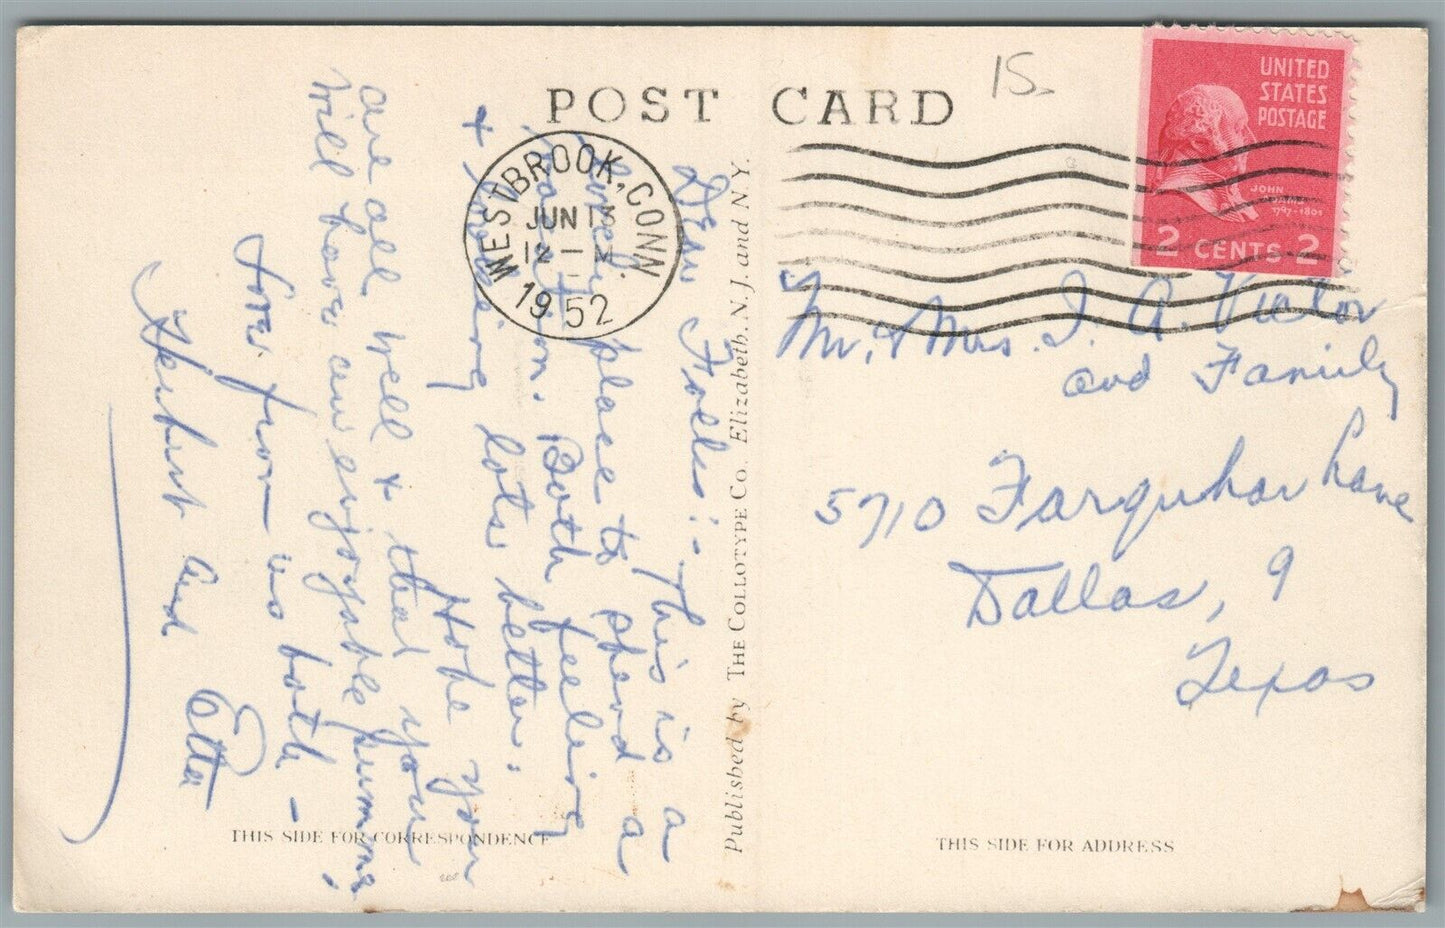 POST CARD
15.
UNITED
STATES
POSTAGE
JOHN
1797-1801
2 CENTS 2
WESTBROOK, CONN.
JUN 13
12 – M
1952
Dear Folks:- This is a
lovely place to spend a
vacation. Both feeling
& looking lots better.
Hope you
are all well & that you
will have an enjoyable summer.
Love from us both –
Herbert and Etta
Published by THE COLLOTYPE CO. Elizabeth, N. J. and N. Y.
Mr. & Mrs. I. A. Victor
and Family
5710 Farquhar Lane
Dallas, 9
Texas
THIS SIDE FOR CORRESPONDENCE
THIS SIDE FOR ADDRESS